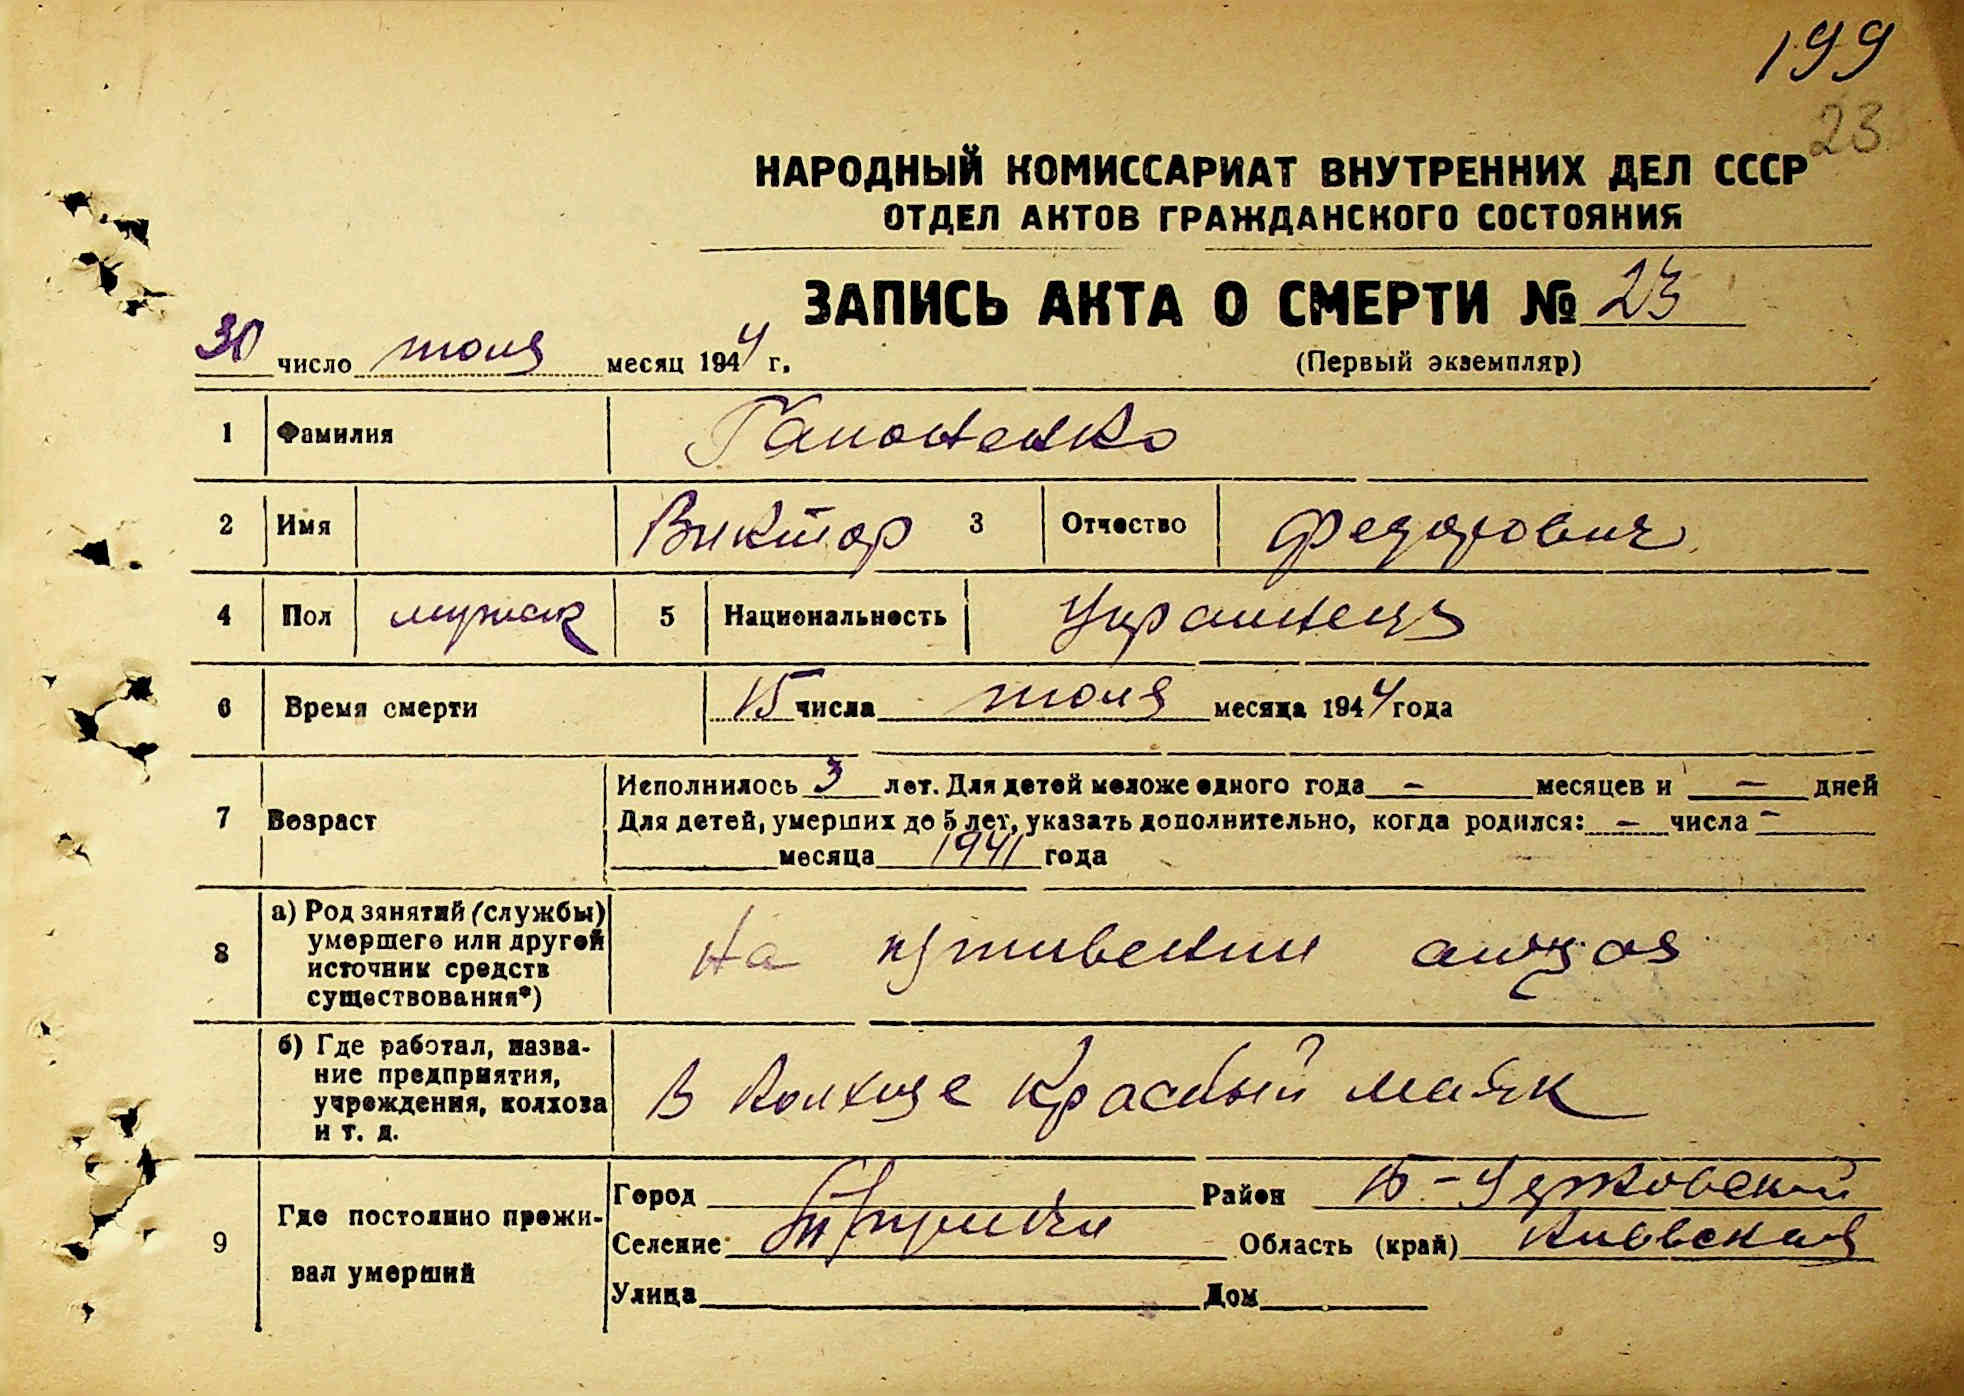 199
23
НАРОДНЫЙ КОМИССАРИАТ ВНУТРЕННИХ ДЕЛ СССР
ОТДЕЛ АКТОВ ГРАЖДАНСКОГО СОСТОЯНИЯ
ЗАПИСЬ АКТА О СМЕРТИ № 23
30 число июля месяц 1944 г.
(Первый экземпляр)
1 Фамилия Гапоненко
2 Имя Виктор 3 Отчество Федорович
4 Пол мужск 5 Национальность Украинец
6 Время смерти 15 числа июля месяца 1944 года
7 Возраст Исполнилось 3 лет. Для детей моложе одного года — месяцев и — дней
Для детей, умерших до 5 лет, указать дополнительно, когда родился: — числа —
месяца 1941 года
8 а) Род занятий (службы) умершего или другой источник средств существования*) На иждивении
б) Где работал, название предприятия, учреждения, колхоза и т. д. В колхозе Красный маяк
9 Где постоянно проживал умерший
Город Район Б-Церковский
Селение Область (край) Киевская
Улица Дом